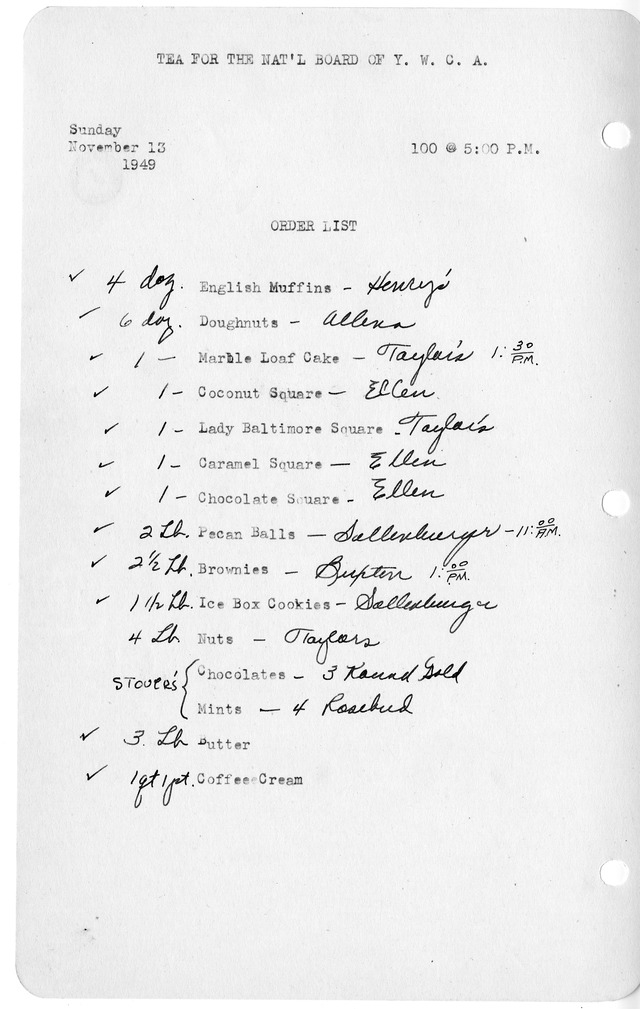 TEA FOR THE NAT'L BOARD OF Y. W. C. A.
Sunday
November 13 100 @ 5:00 P.M.
1949
ORDER LIST
✓ 4 doz. English Muffins - Henry's
✓ 6 doz. Doughnuts - Allena
✓ 1 - Marble Loaf Cake - Taylor's 1:30 P.M.
✓ 1- Coconut Square - Ellen
✓ 1- Lady Baltimore Square - Taylor's
✓ 1- Caramel Square - Ellen
✓ 1- Chocolate Square - Ellen
✓ 2 Lb. Pecan Balls - Sollenburger - 11:00 A.M.
✓ 2½ Lb. Brownies - 1:00 P.M.
✓ 1 1/2 Lb. Ice Box Cookies - Sollenburger
4 Lb Nuts - Taylors
STOUER'S { Chocolates - 3 Round Gold
Mints - 4 Rosebud
✓ 3 Lb Butter
✓ 1qt 1pt. Coffee Cream